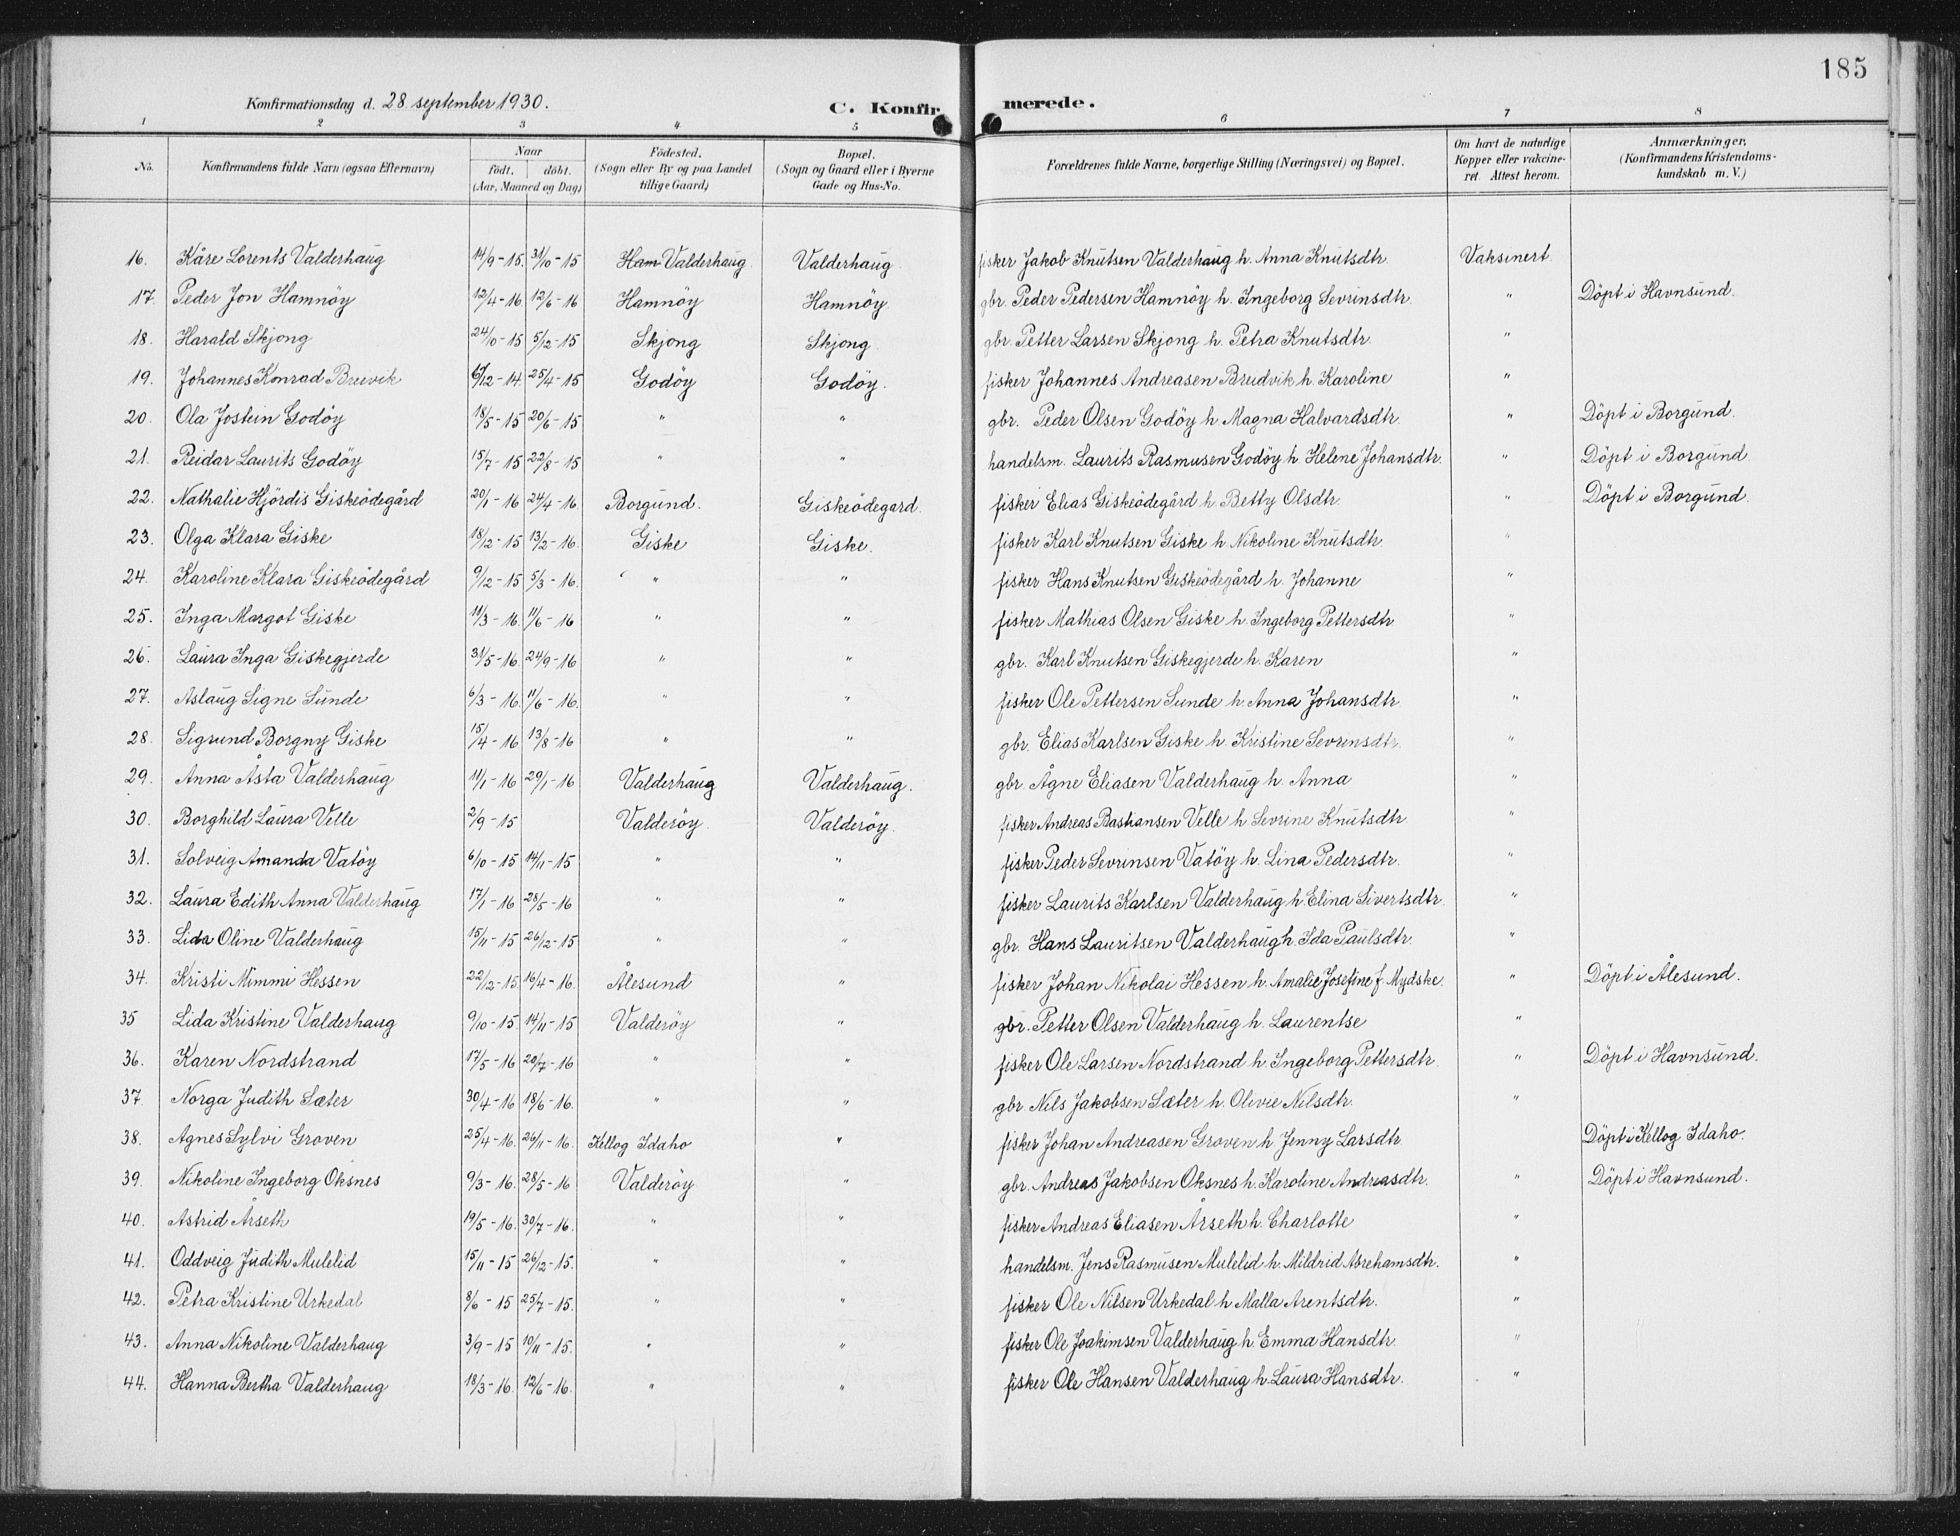 185
Konfirmationsdag d. 28. september 1930.
C. Konfirmerede.
1 2 3 4 5 6 7 8
No. Konfirmandens fulde Navn (ogsaa Efternavn) Naar født. døbt. (Aar, Maaned og Dag) Fødested. (Sogn eller By og paa Landet tillige Gaard) Bopæl. (Sogn og Gaard eller i Byerne Gade og Hus-No. Forældrenes fulde Navne, borgerlige Stilling (Næringsvei) og Bopæl. Om havt de naturlige Kopper eller vakcineret. Attest herom. Anmærkninger, (Konfirmandens Kristendomskundskab m. V.)
16. Kåre Lorents Valderhaug 14/9-15. 31/10-15 Ham Valderhaug Valderhaug. fisker Jakob Knutsen Valderhaug h. Anna Knutsdtr. Vaksinert.
17. Peder Jon Hamnöy 12/4-16 12/6-16 Hamnöy Hamnöy. gbr. Peder Pedersen Hamnöy h. Ingeborg Sevrinsdtr. " Döpt i Havnsund.
18. Harald Skjong 24/10-15 5/12-15 Skjong Skjong. gbr. Petter Larsen Skjong h. Petra Knutsdtr. "
19. Johannes Konrad Breivik 6/12-14. 25/4-15 Godöy Godöy. fisker Johannes Andreasen Breidvik h. Karoline "
20. Ola Jostein Godöy 18/5-15 20/6-15 " " gbr. Peder Olsen Godöy h. Magna Halvardsdtr. " Döpt i Borgund.
21. Reidar Laurits Godöy 15/7-15 22/8-15 " " handelsm. Laurits Rasmusen Godöy h. Helene Johansdtr. " Döpt i Borgund.
22. Nathalie Hjördis Giskeödegård 20/1-16 24/4-16. Borgund. Giskeödegard. fisker Elias Giskeödegård h. Betty Olsdtr. " Döpt i Borgund.
23. Olga Klara Giske 18/12-15 13/2-16. Giske Giske. fisker Karl Knutsen Giske h. Nikoline Knutsdtr. "
24. Karoline Klara Giskeödegård 9/12-15 5/3-16. " " fisker Hans Knutsen Giskeödegård h. Johanne "
25. Inga Margot Giske 11/3-16. 11/6-16 " " fisker Mathias Olsen Giske h. Ingeborg Pettersdtr. "
26. Laura Inga Giskegjerde 31/5-16. 24/9-16 " " gbr. Karl Knutsen Giskegjerde h. Karen "
27. Aslaug Signe Sunde 6/3-16. 11/6-16. " " fisker Ole Pettersen Sunde h. Anna Johansdtr. "
28. Sigrund Borgny Giske 15/4-16 13/8-16 " " gbr. Elias Karlsen Giske h. Kristine Sevrensdtr. "
29. Anna Åsta Valderhaug 11/1-16 29/1-16 Valderhaug Valderhaug. gbr. Ågne Eliasen Valderhaug h. Anna "
30. Borghild Laura Velle 2/9-15 Valderöy. Valderöy. fisker Andreas Bastiansen Velle h. Sevrine Knutsdtr. "
31. Solveig Amanda Vatöy 6/10-15 14/11-15 " " fisker Peder Sevrinsen Vatöy h. Lina Pedersdtr. "
32. Laura Edith Anna Valderhaug 17/1-16 28/5-16 " " fisker Laurits Karlsen Valderhaug h. Elina Sivertsdtr. "
33. Lida Oline Valderhaug 15/11-15 26/12-15 " " gbr. Hans Lauritsen Valderhaug h. Ida Paulsdtr. "
34. Kristi Mimmi Hessen 22/12-15 16/4-16. Ålesund " fisker Johan Nikolai Hessen h. Amalie Josefine f. Mydske. " Döpt i Ålesund.
35 Lida Kristine Valderhaug 9/10-15. 14/11-15 Valderöy " gbr. Petter Olsen Valderhaug h. Laurentse "
36. Karen Nordstrand 17/5-16 20/7-16 " " fisker Ole Larsen Nordstrand h. Ingeborg Pettersdtr. " Döpt i Havnsund.
37. Norga Judith Sæter 30/4-16 18/6-16. " " gbr. Nils Jakobsen Sæter h. Olivie Nilsdtr. "
38. Agnes Sylvi Groven 25/4-16. 26/11-16. Kellog Idaho " fisker Johan Andreasen Groven h. Jenny Larsdtr. Döpt i Kellog Idaho.
39. Nikoline Ingeborg Oksnes 9/3-16. 28/5-16 Valderöy " gbr. Andreas Jakobsen Oksnes h. Karoline Andreasdtr. " Döpt i Havnsund.
40. Astrid Årseth 19/5-16. 30/7-16. " " fisker Andreas Eliasen Årseth h. Charlotte "
41. Oddveig Judith Mulelid 15/11-15 26/12-15. " " handelsm. Jens Rasmusen Mulelid h. Mildrid Abrehamsdtr. "
42. Petra Kristine Urkedal 8/6-15 25/7-15. " " fisker Ole Nilsen Urkedal h. Malla Arentsdtr. "
43. Anna Nikoline Valderhaug 3/9-15 10/11-15. " " fisker Ole Joakimsen Valderhaug h. Emma Hansdtr. "
44. Hanna Bertha Valderhaug 18/3-16. 12/6-16. " " fisker Ole Hansen Valderhaug h. Laura Hansdtr. "